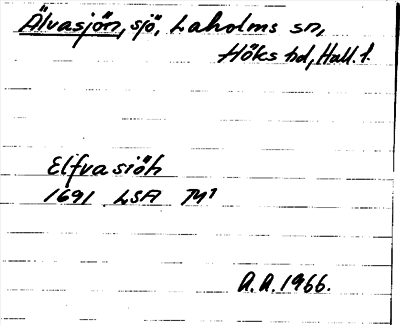 Älvasjön, sjö, Laholms sn,
Höks hd, Hall. l.
Elfvasiöh
1691 LSA M1
A.A. 1966.